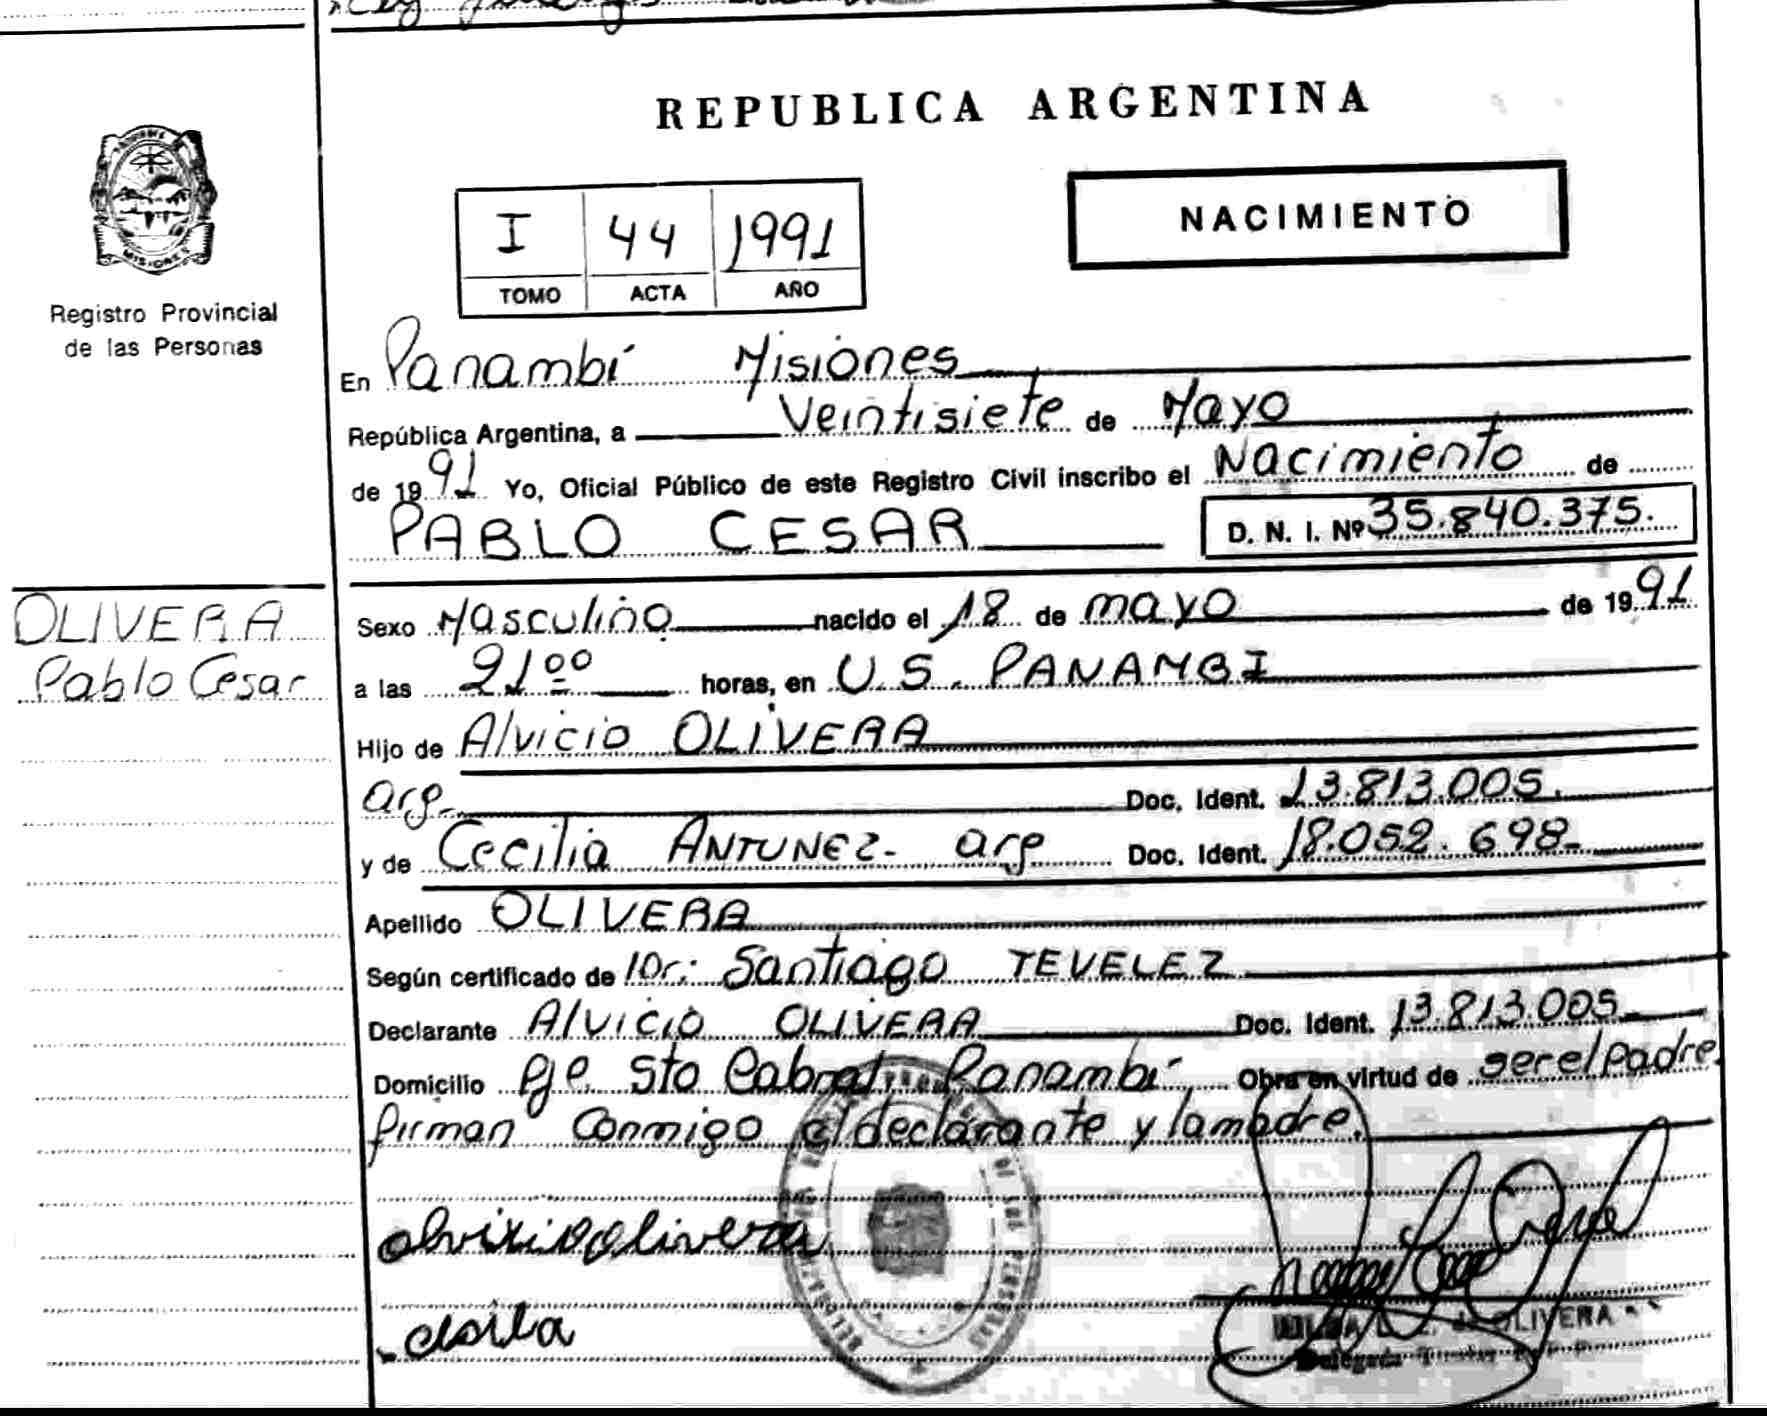 REPUBLICA ARGENTINA
MISIONES
Registro Provincial
de las Personas
I 44 1991
TOMO ACTA AÑO
NACIMIENTO
En Panambí Misiones
República Argentina, a Veintisiete de Mayo
de 1991 Yo, Oficial Público de este Registro Civil inscribo el Nacimiento de
PABLO CESAR D. N. I. Nº 35.840.375.
OLIVERA
Pablo Cesar
Sexo Masculino nacido el 18 de mayo de 1991
a las 21ºº horas, en U.S. PANAMBI
Hijo de Alvicio OLIVERA
arg. Doc. Ident. 13.813.005.
y de Cecilia ANTUNEZ- arg Doc. Ident. 18.052.698-
Apellido OLIVERA
Según certificado de Dr.: Santiago TEVELEZ
Declarante Alvicio OLIVERA Doc. Ident. 13.813.005
Domicilio Pje. Sto Cabral, Panambí, Obra en virtud de ser el Padre.
firman conmigo el declarante y la madre.
alvixio olivera
OLIVERA
Delegada